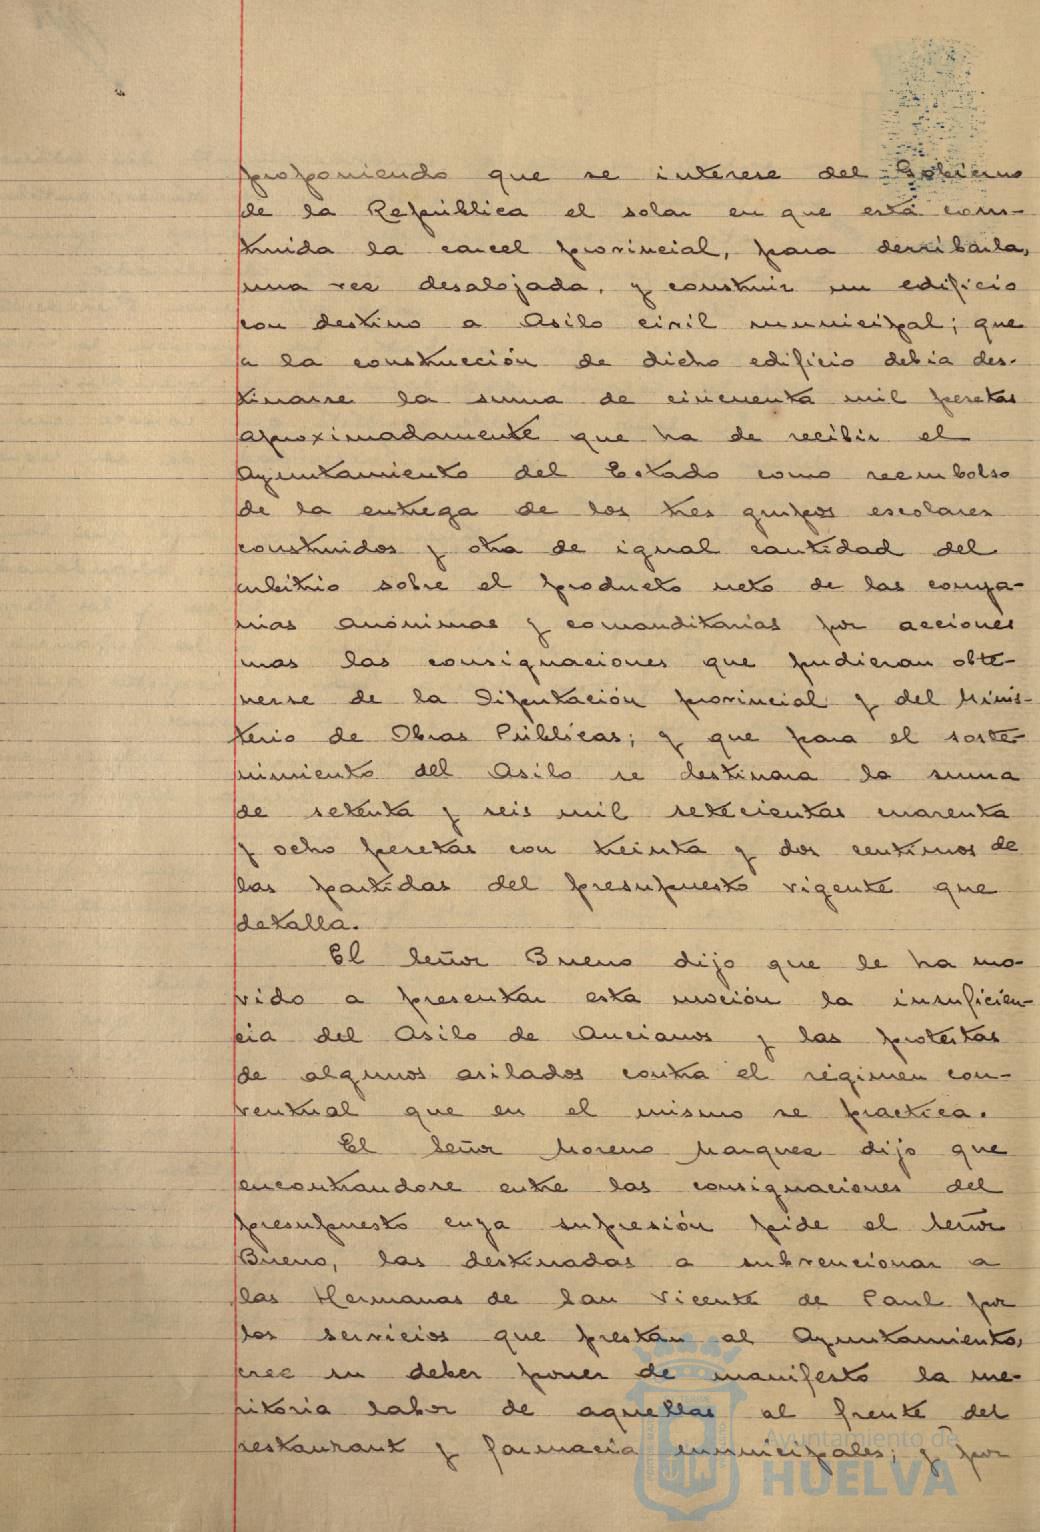 proponiendo que se interese del Gobierno
de la República el solar en que está cons-
truida la carcel provincial, para derribarla,
una vez desalojada, y construir un edificio
con destino a Asilo civil municipal; que
a la construcción de dicho edificio debia des-
tinarse la suma de cincuenta mil pesetas
aproximadamente que ha de recibir el
Ayuntamiento del Estado como reembolso
de la entrega de los tres grupos escolares
construidos y otra de igual cantidad del
arbitrio sobre el producto neto de las compa-
ñias anónimas y comanditarias por acciones
mas las consignaciones que pudieran obte-
nerse de la Diputación provincial y del Minis-
terio de Obras Públicas; y que para el soste-
nimiento del Asilo se destinara la suma
de setenta y seis mil setecientas cuarenta
y ocho pesetas con treinta y dos centimos de
las partidas del presupuesto vigente que
detalla.
El Señor Bueno dijo que le ha mo-
vido a presentar esta moción la insuficien-
cia del Asilo de Ancianos y las protestas
de algunos asilados contra el régimen con-
ventual que en el mismo se practica.
El Señor Moreno Marquez dijo que
encontrandose entre las consignaciones del
presupuesto cuya supresión pide el Señor
Bueno, las destinadas a subvencionar a
las Hermanas de San Vicente de Paul por
los servicios que prestan al Ayuntamiento,
cree su deber poner de manifesto la me-
ritoria labor de aquellas al frente del
restaurant y farmacia municipales; y por
Ayuntamiento de
HUELVA